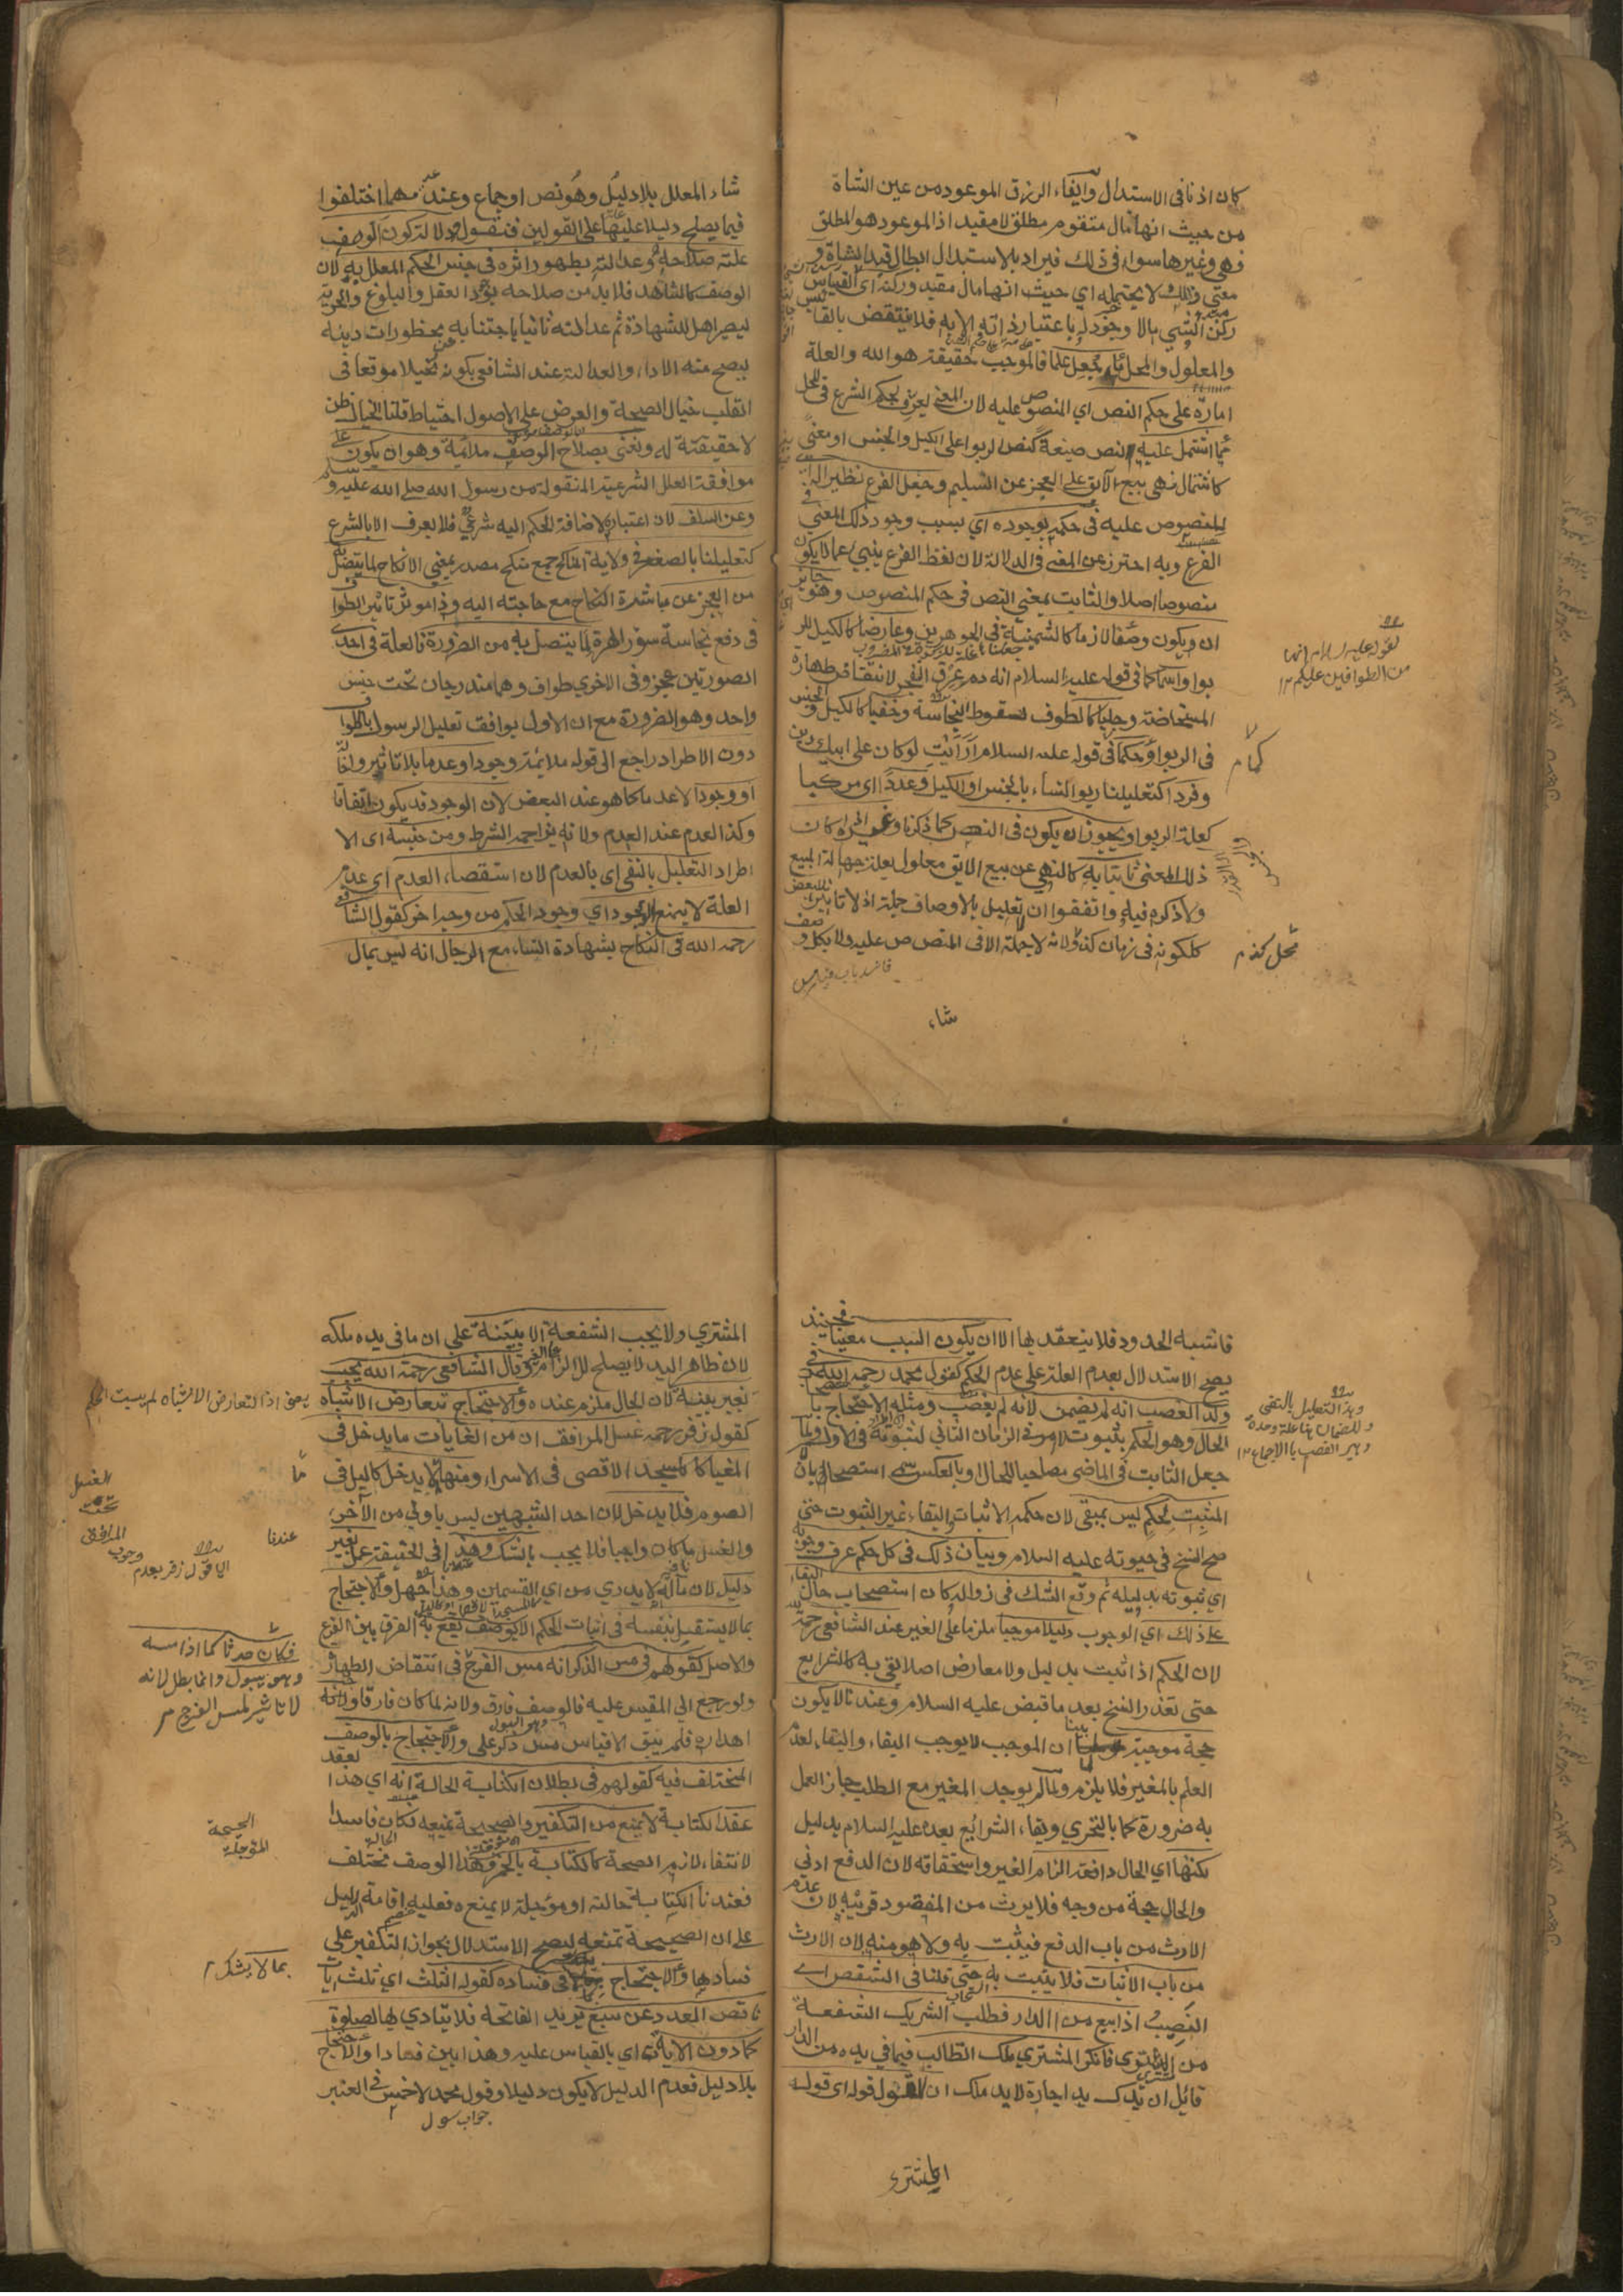 كان اذنا فى الاستبدال وايفاء الرزق الموعود من عين الشاة
من حيث انها مال متقوم مطلق لا مقيد اذ الموعود هو المطلق
وهى وغيرها سواء فى ذلك فيراد بالاستبدال ابطال قيد الشاة و
معنى لا يحتمله اى حيث انها مال مقيد وركنه اى القياس
ركن الشئ بالا وجود له باعتبار ذاته الا به فلا ينتقض بالفا
والمعلول والمحل ما جعل علما فالموجب حقيقة هو الله والعلة
امارة على حكم النص اى المنصوص عليه لان المعنى يعرف لحكم الشرع فى المحل
مما اشتمل عليه النص صيغة كنص الربوا على الكيل والجنس او معنى
كاشتمال نهى بيع الآبق على العجز عن التسليم وجعل الفرع نظيرا له
للمنصوص عليه فى حكمه بوجوده اى بسبب وجود ذلك المعنى فى
الفرع وبه احترز عن المعنى فى الدلالة لان لفظ الفرع ينبئ عما لا يكون
منصوصا اصلا والثابت بمعنى النص فى حكم المنصوص وهو جائز
ان يكون وصفا لازما كالثمنية فى الجوهرين وعارضا كالكيل للر
بوا واسما كما فى قوله عليه السلام انه دم عرق انفجر لانتقاض طهارة
المستحاضة وجليا كالطوف لسقوط النجاسة وخفيا كالكيل والجنس
فى الربوا وحكما فى قوله عليه السلام ارأيت لو كان على ابيك دين
وفردا كتعليلنا ربوا النساء بالجنس او الكيل وعددا اى مركبا
كعلة الربوا ويجوز ان يكون فى النص كما ذكرنا وغيره اذا كان
ذلك المعنى ثابتا به كالنهى عن بيع الابق معلول بعلة جهالة المبيع
ولا ذكره فيه واتفقوا ان التعليل بالاوصاف جملة اذ لا تاثير للبعض
ككونه فى زمان كذا ولانه لا جملة الا فى المنصوص عليه ولا بكل وصف
شاء
لقوله عليه السلام انها
من الطوافين عليكم ١٢
كما م
محل كذا م
شاء المعلل بلا دليل وهو نص او اجماع وعند عدمهما اختلفوا
فيما يصلح دليلا عليها على القولين فنقول دلالة كون الوصف
علة صلاحه وعدالته بظهور اثره فى جنس الحكم المعلل به لان
الوصف كالشاهد فلا بد من صلاحه بوجود العقل والبلوغ والحرية
ليصير اهلا للشهادة ثم عدالته ثانيا باجتنابه محظورات دينه
ليصح منه الاداء والعدالة عند الشافعى بكونه مخيلا موقعا فى
القلب خيال الصحة والعرض على الاصول احتياط قلنا الخيال ظن
لا حقيقة له ونعنى بصلاح الوصف ملائمة وهو ان يكون على
موافقة العلل الشرعية المنقولة من رسول الله صلى الله عليه وسلم
وعن السلف لان اعتباره لاضافة الحكم اليه شرعى فلا يعرف الا بالشرع
كتعليلنا بالصغر فى ولاية المناكح جمع منكح مصدر بمعنى الانكاح لما يتصل به
من العجز عن مباشرة النكاح مع حاجته اليه وذا موثر تاثير الطواف
فى دفع نجاسة سؤر الهرة لما يتصل به من الضرورة فالعلة فى احدى
الصورتين عجز وفى الاخرى طواف وهما مندرجان تحت جنس
واحد وهو الضرورة مع ان الاول يوافق تعليل الرسول بالطواف
دون الاطراد راجع الى قوله ملائمة وجودا وعدما بلا تاثير
او وجودا لا عدما كما هو عند البعض لان الوجود قد يكون اتفاقا
وكذا العدم عند العدم ولانه يزاحمه الشرط ومن جنسه اى الا
اطراد التعليل بالنفى اى بالعدم لان استقصاء العدم اى عدم
العلة لا يمنع الوجود اى وجود الحكم من وجه اخر كقول الشافعى
رحمه الله فى النكاح بشهادة النساء مع الرجال انه ليس بمال
فاشبه الحدود فلا ينعقد بها الا ان يكون السبب معينا فحينئذ
يصح الاستدلال بعدم العلة على عدم الحكم كقول محمد رحمه الله فى
ولد الغصب انه لم يضمن لانه لم يغصب ومثله الاحتجاج با
الحال وهو الحكم بثبوت امر فى الزمان الثانى لثبوته فى الاول ولما
جعل الثابت فى الماضى مصاحبا للحال او بالعكس سمى استصحابا لان
المثبت لحكم ليس بمبقى لان حكمه الاثبات والبقاء غير الثبوت حتى
صح النسخ فى حيوته عليه السلام وبيان ذلك فى كل حكم عرف وجوبه
اى ثبوته بدليله ثم وقع الشك فى زواله كان استصحاب حال البقاء
على ذلك اى الوجوب دليلا موجبا ملزما على الغير عند الشافعى رحمه الله
لان الحكم اذا ثبت بدليل ولا معارض اصلا بقى به كالشرايع
حتى تعذر النسخ بعد ما قبض عليه السلام وعندنا لا يكون
حجة موجبة بينا ان الموجب لا يوجب البقاء والبقاء لعدم
العلم بالمغير فلا يلزم ولما لم يوجد المغير مع الطلب جاز العمل
به ضرورة كما بالتحرى وبقاء الشرائع بعده عليه السلام بدليل
لكنها اى الحال دافعة الزام الغير واستحقاقه لان الدفع ادنى
والحال حجة من وجه فلا يرث من المفقود قريبه لان عدم
الارث من باب الدفع فيثبت به ولا هو منه لان الارث
من باب الاثبات فلا يثبت به حتى قلنا فى الشقص اى
النصيب اذا بيع من الدار فطلب الشريك الشفعة
من المشترى فانكر المشترى ملك الطالب فيما فى يده من الدار
قائل ان يدك يد اجارة لا يد ملك ان القول قوله اى قول
المشترى
وهذا التعليل بالنفى
وللضمان هنا علة واحدة
وهى الغصب بالاجماع ١٢
المشترى ولا يجب الشفعة الا ببينة على ان ما فى يده ملكه
لان ظاهر اليد لا يصلح للالزام على الغير وقال الشافعى رحمة الله يجب
بغير بينة لان الحال ملزم عنده والاحتجاج بتعارض الاشباه
كقول زفر رحمه غسل المرافق ان من الغايات ما يدخل فى
المغيا كالمسجد الاقصى فى الاسراء ومنها لا يدخل كالليل فى
الصوم فلا يدخل لان احد الشبهين ليس باولى من الآخر
والغسل ما كان واجبا فلا يجب بالشك وهذا فى الحقيقة عمل بغير
دليل لان مآله لا يدرى من اى القسمين وهذا جهل والاحتجاج
بما لا يستقل بنفسه فى اثبات الحكم الا بوصف يقع به الفرق بين الفرع
والاصل كقولهم فى مس الذكر انه مس الفرج فى انتقاض الطهارة
ولو رجع الى المقيس عليه فالوصف فارق ولانه لما كان فارقا
اهداره فلم يبق الا قياس مس ذكر على والاحتجاج بالوصف
المختلف فيه كقولهم فى بطلان الكتابة الحالة انه اى هذا
عقد الكتابة لا يمنع من التكفير والصحيحة تمنعه فكان فاسدا
لانتفاء لازم الصحة كالكتابة بالخمر وهذا الوصف مختلف
فعندنا الكتابة حالة او مؤجلة لا يمنعه فعليه اقامة الدليل
على ان الصحيحة تمنعه ليصح الاستدلال بجواز التكفير على
فسادها والاحتجاج فى فساده كقوله الثلث اى ثلث ايات
ناقص العدد عن سبع يريد الفاتحة فلا يتادى بها الصلوة
كما دون الاية اى بالقياس عليه وهذا بين فسادا والاحتجاج
بلا دليل فعدم الدليل لا يكون دليلا وقول محمد لا خمس فى العنبر
جواب سول
يعنى اذا التعارض الاشباه لم يثبت الحكم
الغسل
تحت
المرافق
وجوب
عندنا
الا قول زفر بعدم
فكان حدثا كما اذا مسه
وهو يبول وانما بطل لانه
لا تاثير لمس الفرج م
الصحيحة
المؤجلة
بما لا يشك م